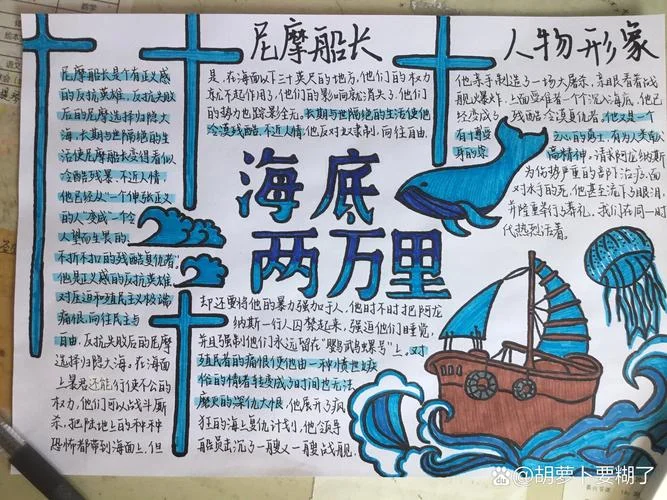 尼摩船长
人物形象
海底
两万里
尼摩船长是个有正义感
的反抗英雄,反抗失败
后的尼摩选择归隐大
海,长期与世隔绝的生
活使尼摩船长变得看似
冷酷残暴,不近人情,
他已经从"一个伸张正义
的人"变成"一个令
人望而生畏的
不折不扣的残酷复仇者"
他是正义感的反抗英雄
对压迫和殖民主义极端
痛恨,向往民主与
自由,反抗失败后的尼摩
选择归隐大海。在海面
上暴君还能行使不公的
权力,他们可以战斗厮
杀,把陆地上的种种
恐怖都带到海面上,但
是,在海面以下三十英尺的地方,他们的权力
就不起作用了,他们的影响就消失了,他们
的势力也踪影全无。长期与世隔绝的生活使他
冷漠残酷,不近人情,他反对奴隶制,向往自由,
却还要将他的暴力强加于人,他时不时把阿龙
纳斯一行人囚禁起来,强迫他们睡觉,
并且强制他们永远留在"鹦鹉螺号"上。对
殖民者的痛恨使他由一种愤世嫉
俗的情者转变成了时间也无法
磨灭的深仇大恨,他展开了疯
狂的海上复仇计划,他领导
船员击沉了一艘又一艘战舰,
他亲手制造了一场大屠杀,亲眼看着战
舰爆炸,上面受难者一个个沉入海底,他已
经变成了残酷冷漠复仇者,他又是一个
有博爱
之心的勇士,有为人类献
身的崇
高精神,请求阿龙纳斯
为伤势严重的部下治疗,面
对水手的死,他甚至流下了眼泪,
并隆重举行了葬礼,我们在同一时
代热烈活着。
胡萝卜要糊了